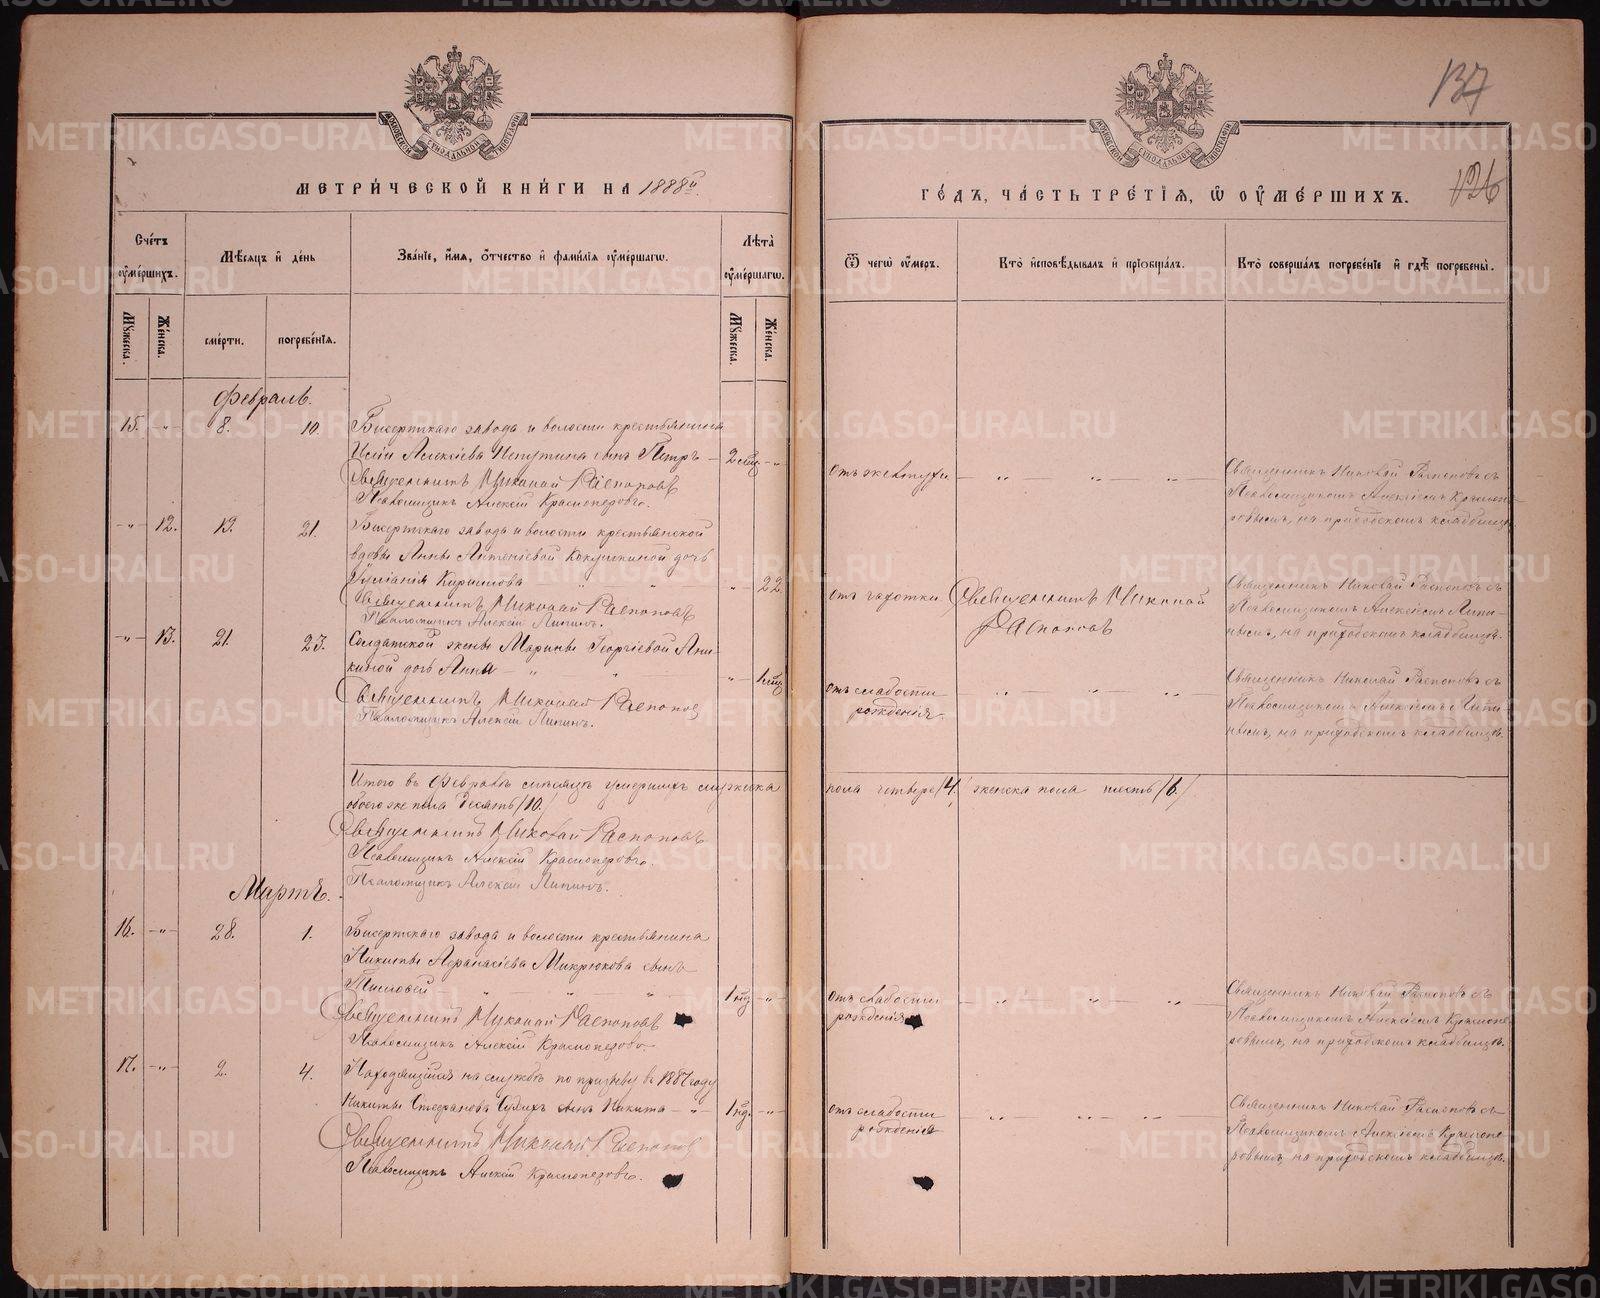 МЕТРИ́ЧЕСКОЙ КНИ́ГИ НА 1888й
Сче́тъ ᲂу҆ме́ршихъ.
Мѣ́сяцъ и҆ де́нь
Зва́нїе, и҆́мѧ, ѻ҆́тчество и҆ фами́лїѧ ᲂу҆ме́ршагѡ.
Лѣ́та ᲂу҆ме́ршагѡ.
Мꙋ́жеска.
Же́нска.
сме́рти.
погребе́нїѧ.
Мꙋ́жеска.
Же́нска.
Февраль.
15. - „ - 8. 10. Бисертскаго завода и волости крестьянина
Алексѣева сынъ Петръ - 2 мѣц - „
Священникъ Николай Распоповъ
Псаломщикъ Алексѣй Красноперовъ.
- „ - 12. 19. 21. Бисертскаго завода и волости крестьянской
вдовы Анны Кокушкиной дочь
Іуліанія Кирилова „ „ - „ - 22
Священникъ Николай Распоповъ
Псаломщикъ Алексѣй Липинъ.
- „ - 13. 21. 23. Солдатской жены Марины Георгіевой Ани-
киной дочь Анна - „ „ - „ - 1 мѣц
Священникъ Николай Распоповъ
Псаломщикъ Алексѣй Липинъ.
Итого въ Февралѣ мѣсяцѣ умершихъ мужска
обоего же пола десять /10./
Священникъ Николай Распоповъ
Псаломщикъ Алексѣй Красноперовъ.
Псаломщикъ Алексѣй Липинъ.
Мартъ.
16. - „ - 28. 1. Бисертскаго завода и волости крестьянина
Никиты Афанасіева Микрюкова сынъ
Тимофей - „ - „ - „ - 1 нд. - „ -
Священникъ Николай Распоповъ
Псаломщикъ Алексѣй Красноперовъ.
17. - „ - 2. 4. Находящійся на службѣ по призыву въ 1887 году
Никиты Стефанова Сухихъ сынъ Никита - „ - 1 нд. - „ -
Священникъ Николай Распоповъ
Псаломщикъ Алексѣй Красноперовъ.
137
126
ГО́ДЪ, ЧА́СТЬ ТРЕ́ТЇѦ, Ѡ҆ ᲂУ҆МЕ́РШИХЪ.
Ѿ чегѡ̀ ᲂу҆́меръ.
Кто̀ и҆сповѣ́дывалъ и҆ прїѡбща́лъ.
Кто̀ соверша́лъ погребе́нїе и҆ гдѣ̀ погребены̀.
Отъ живота - „ - „ - „ -
Священникъ Николай Распоповъ съ
Псаломщикомъ Алексѣемъ Краснопе-
ровымъ, на приходскомъ кладбищѣ.
отъ чахотки Священникъ Николай
Распоповъ
Священникъ Николай Распоповъ съ
Псаломщикомъ Алексѣемъ Липи-
нымъ, на приходскомъ кладбищѣ.
отъ слабости
рожденія. - „ - „ - „ -
Священникъ Николай Распоповъ съ
Псаломщикомъ Алексѣемъ Липи-
нымъ, на приходскомъ кладбищѣ.
пола четверо /4./ женска пола шесть /6./
отъ слабости
рожденія - „ - „ - „ -
Священникъ Николай Распоповъ съ
Псаломщикомъ Алексѣемъ Краснопе-
ровымъ, на приходскомъ кладбищѣ.
отъ слабости
рожденія - „ - „ - „ -
Священникъ Николай Распоповъ съ
Псаломщикомъ Алексѣемъ Краснопе-
ровымъ, на приходскомъ кладбищѣ.
METRIKI.GASO-URAL.RU